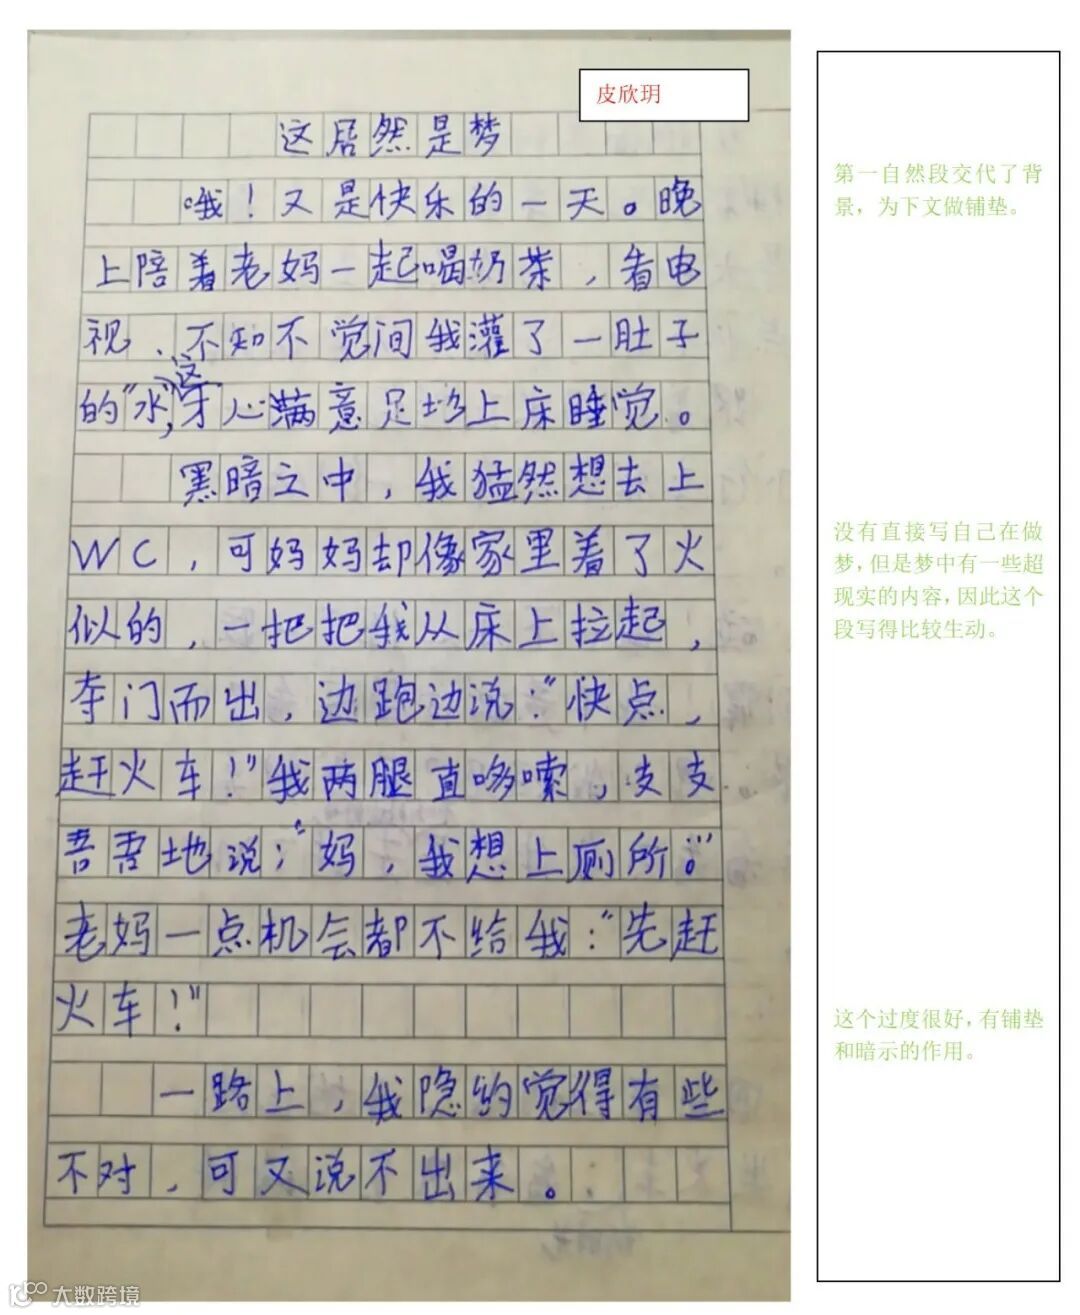 皮欣玥
这居然是梦
哦！又是快乐的一天。晚
上陪着老妈一起喝奶茶，看电
视、不知不觉间我灌了一肚子
的"水"，这才心满意足地上床睡觉。
黑暗之中，我猛然想去上
WC，可妈妈却像家里着了火
似的，一把把我从床上拉起，
夺门而出，边跑边说："快点，
赶火车！"我两腿直哆嗦，支支
吾吾地说："妈，我想上厕所。"
老妈一点机会都不给我："先赶
火车！"
一路上，我隐约觉得有些
不对，可又说不出来。
第一自然段交代了背
景，为下文做铺垫。
没有直接写自己在做
梦，但是梦中有一些超
现实的内容，因此这个
段写得比较生动。
这个过度很好，有铺垫
和暗示的作用。
大数跨境